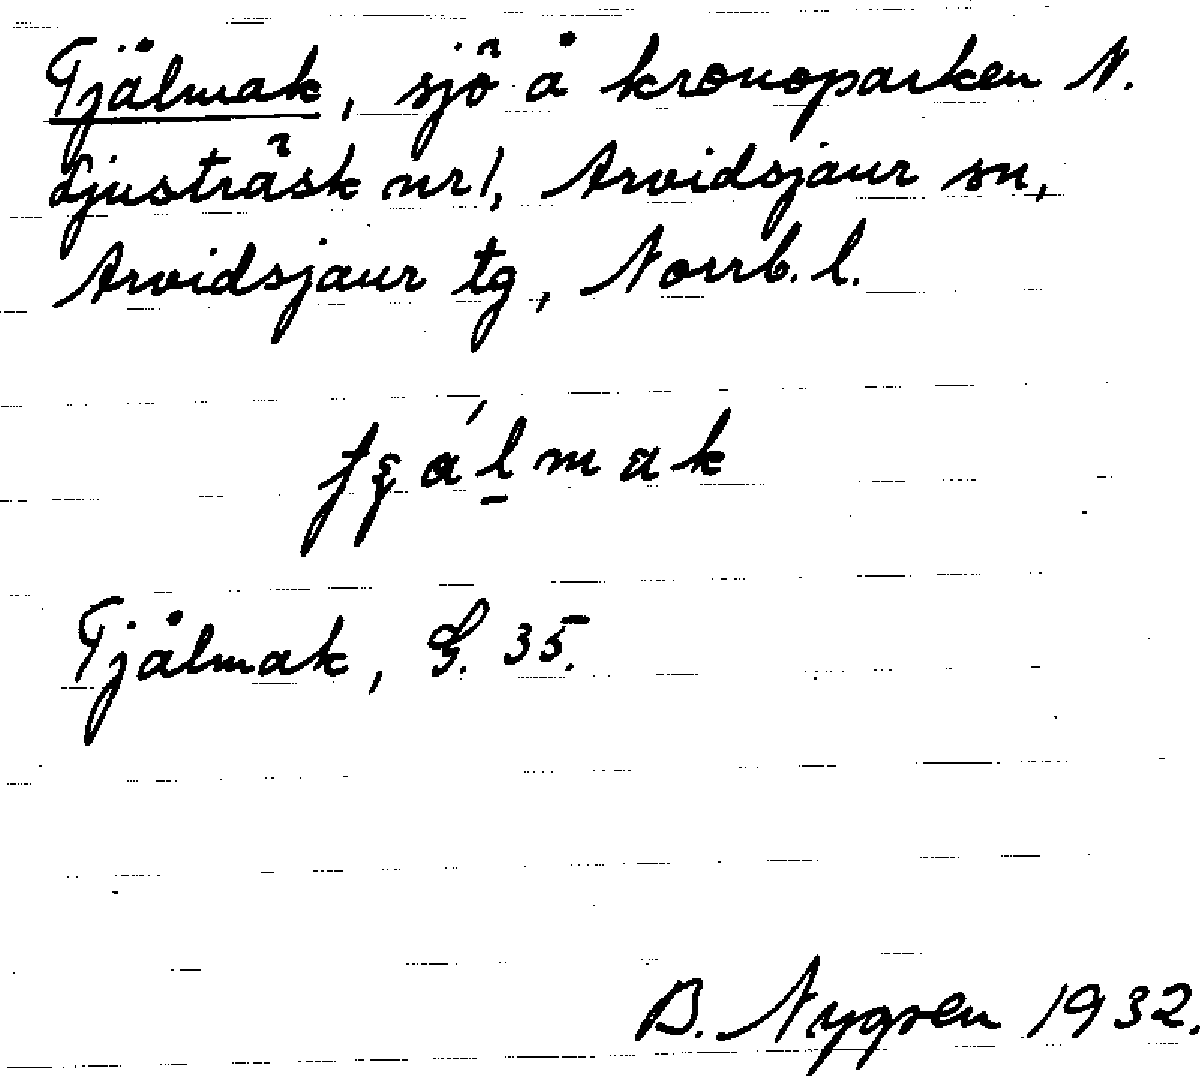 Tjålmak, sjö å kronoparken N.
Ljusträsk nr 1, Arvidsjaur sn,
Arvidsjaur tg, Norrb. l.
Tjålmak, G. 35.
B. Nygren 1932.